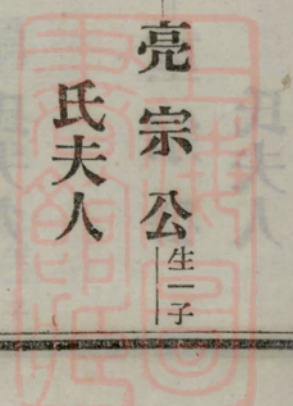 亮宗公生一子
氏夫人